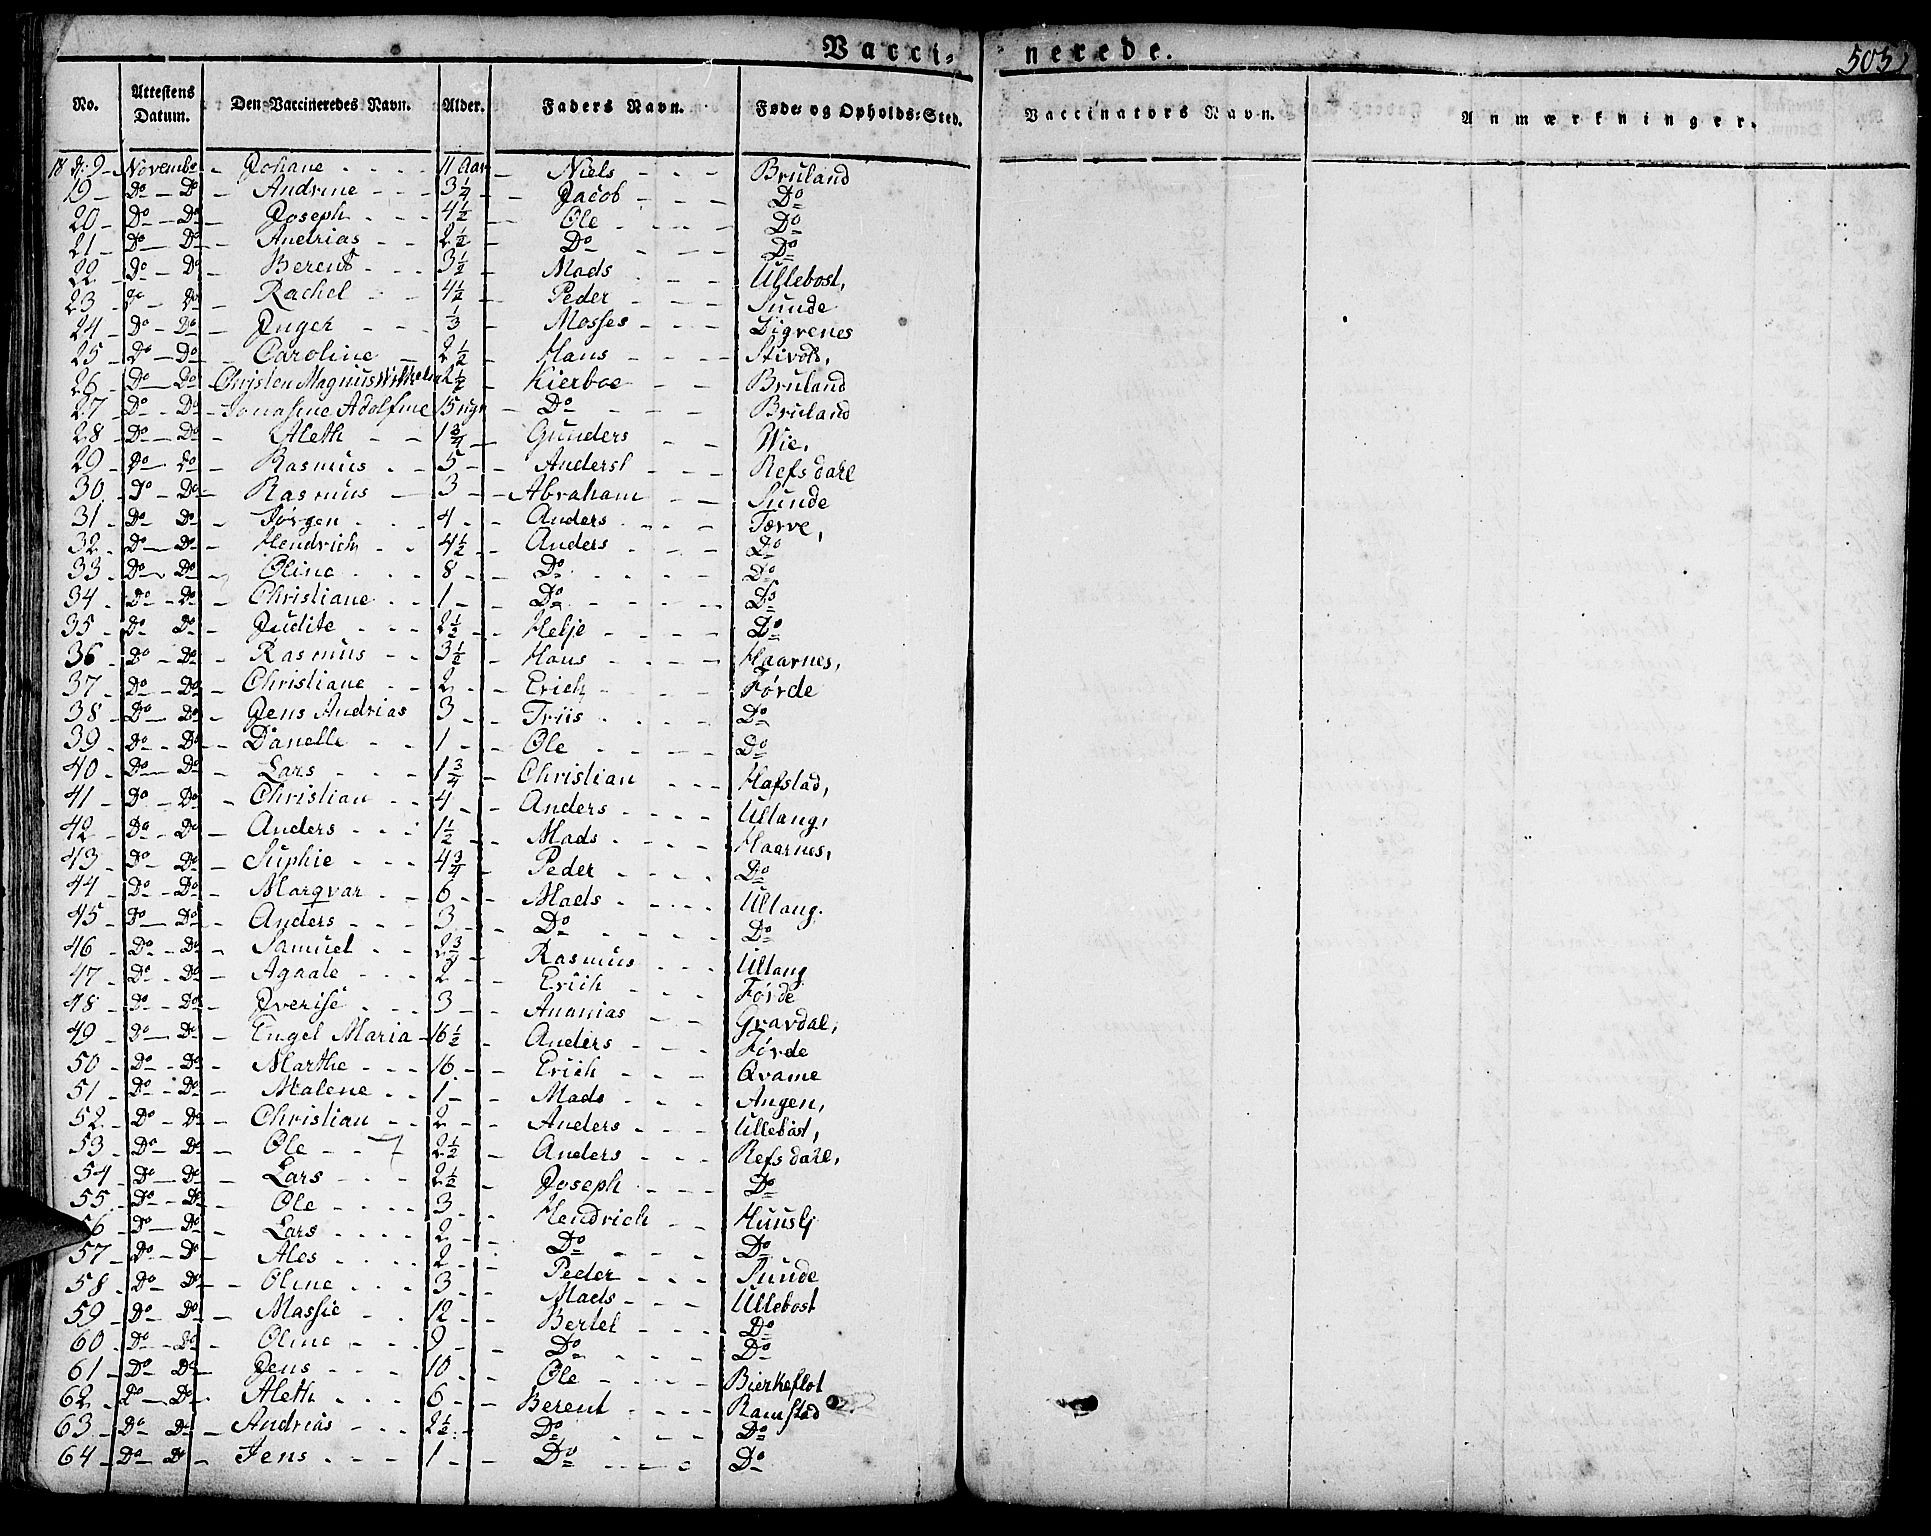 Vacci= nerede. 505
No. Attestens Datum. Den Vaccineredes Navn. Alder. Faders Navn. Føde og Opholds=Sted. Vaccinators Navn. Anmærkninger.
18 9 Novembr Johane 11 Aar Niels Bruland
19 Do Do Andrine 3½ Jacob Do
20 Do Do Joseph 4½ Ole Do
21 Do Do Andrias 2½ Do Do
22 Do Do Berent 3½ Mads Ullebost,
23 Do Do Rachel 4½ Peder Sunde
24 Do Do Inger ⅓ Mosses Digrenes
25 Do Do Caroline 2½ Hans
26 Do Do Christen Magnus 2½ Kierboe Bruland
27 Do Do Jonasine Adolfine 15 ugr Do Bruland
28 Do Do Aleth 1¾ Gunders Wie,
29 Do Do Rasmus 5 Anders Refsdahl
30 Do Do Rasmus 3 Abraham Sunde
31 Do Do Jørgen 4 Anders Tærve,
32 Do Do Hendrich 4½ Anders Do
33 Do Do Oline 8 Do Do
34 Do Do Christiane 1 Do Do
35 Do Do Judite 2½ Helje Do
36 Do Do Rasmus 3½ Hans Haarnes,
37 Do Do Christiane 2 Erich Førde
38 Do Do Jens Andrias 3 Friis Do
39 Do Do Danelle 1 Ole Do
40 Do Do Lars 1¾ Christian Hafstad,
41 Do Do Christian 4 Anders Ultang,
42 Do Do Anders 1½ Mads Haarnes,
43 Do Do Suphie 4¾ Peder Do
44 Do Do Marqvar 6 Mads Ultang.
45 Do Do Anders 3 Do Do
46 Do Do Samuel 2¾ Rasmus Ultang
47 Do Do Agaale 2 Erich Førde
48 Do Do Iverise 3 Ananias Gravdal,
49 Do Do Engel Maria 16½ Anders Førde
50 Do Do Marthe 16 Erich Qvame
51 Do Do Malene 1 Mads Angen,
52 Do Do Christian 2 Anders Ullebost,
53 Do Do Ole 2½ Anders Refsdahl,
54 Do Do Lars 2½ Joseph Do
55 Do Do Ole 3 Hendrich
56 Do Do Lars 2 Do Do
57 Do Do Ales 2 Peder Sunde
58 Do Do Oline 3 Mads Ullebost
59 Do Do Massie 12 Bertel Do
60 Do Do Oline 9 Do Do
61 Do Do Jens 10 Ole Bierkeflot
62 Do Do Aleth 6 Berent Ramstad
63 Do Do Andrias 2½ Do Do
64 Do Do Jens 1 Do Do